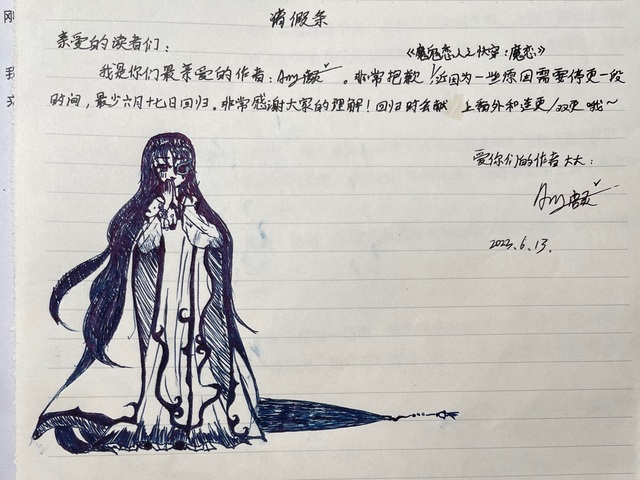 请假条
亲爱的读者们：
《魔鬼恋人之快穿：魔恋》
我是你们最亲爱的作者：Amy 。非常抱歉！近因为一些原因需要停更一段
时间，最少六月十七日回归。非常感谢大家的理解！回归时会献上番外和连更/双更哦～
爱你们的作者大大：
Amy
2023.6.13.
刚
我